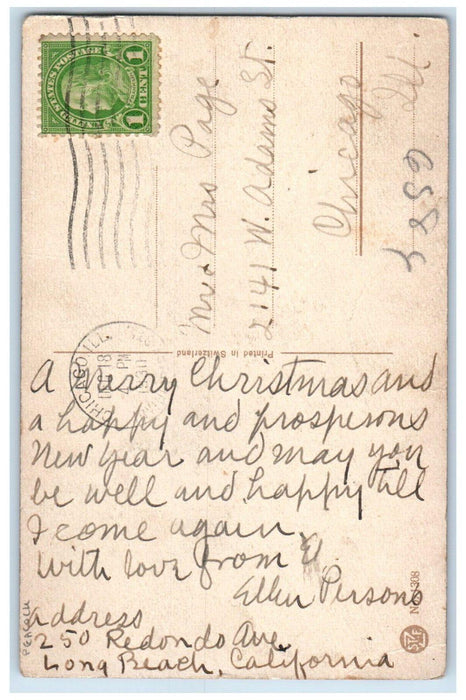 UNITED STATES POSTAGE
1 CENT 1
Mr & Mrs Page
2141 W. Adams St.
Chicago
Ill.
Printed in Switzerland
CHICAGO, ILL.
DEC 18
4 PM
A Merry Christmas and
a happy and prosperous
New Year and may you
be well and happy till
I come again.
With love from
Ellen Persons
address
250 Redondo Ave
Long Beach, California
PEACOCK
308